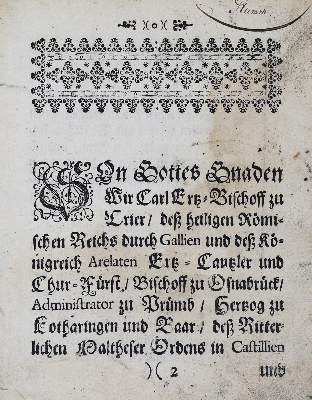 )(o)(
VOn Gottes Gnaden
Wir Carl Ertz-Bischoff zu
Trier/ deß heiligen Römi-
schen Reichs durch Gallien und deß Kö-
nigreich Arelaten Ertz-Cantzler und
Chur-Fürst/ Bischoff zu Osnabrück/
Administrator zu Prümb/ Hertzog zu
Lotharingen und Baar/ deß Ritter-
lichen Maltheser Ordens in Castillien
)( 2 und